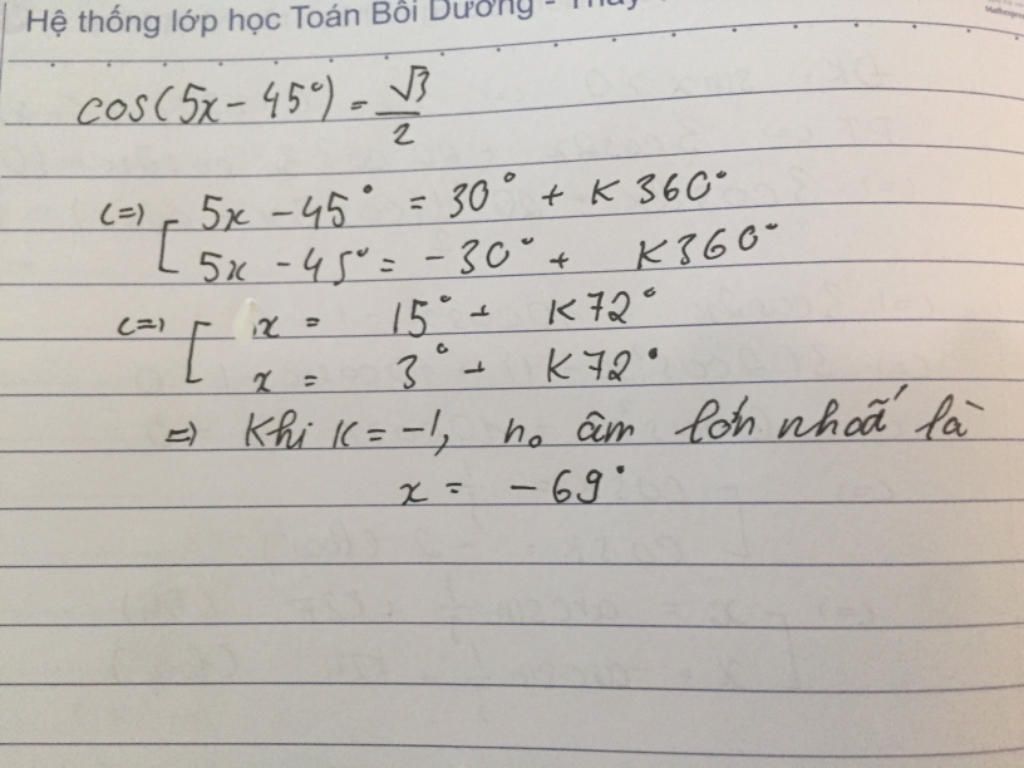 Hệ thống lớp học Toán Bồi Dưỡng - Thầy
cos(5x - 45°) = √3/2
<=> [ 5x - 45° = 30° + K 360°
5x - 45° = -30° + K360°
<=> [ x = 15° + K72°
x = 3° + K72°
=> Khi K = -1, no âm lớn nhất là
x = -69°